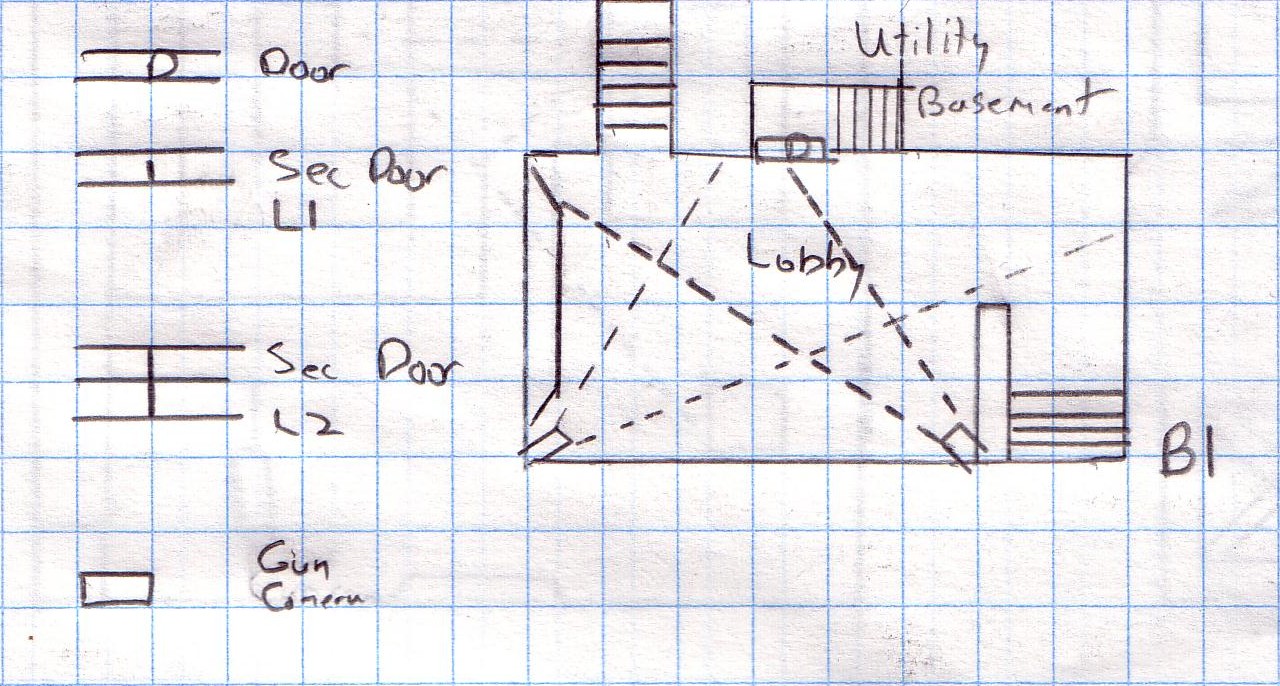 D Door
Sec Door
L1
Sec Door
L2
Gun
Camera
Utility
Basement
D
Lobby
B1